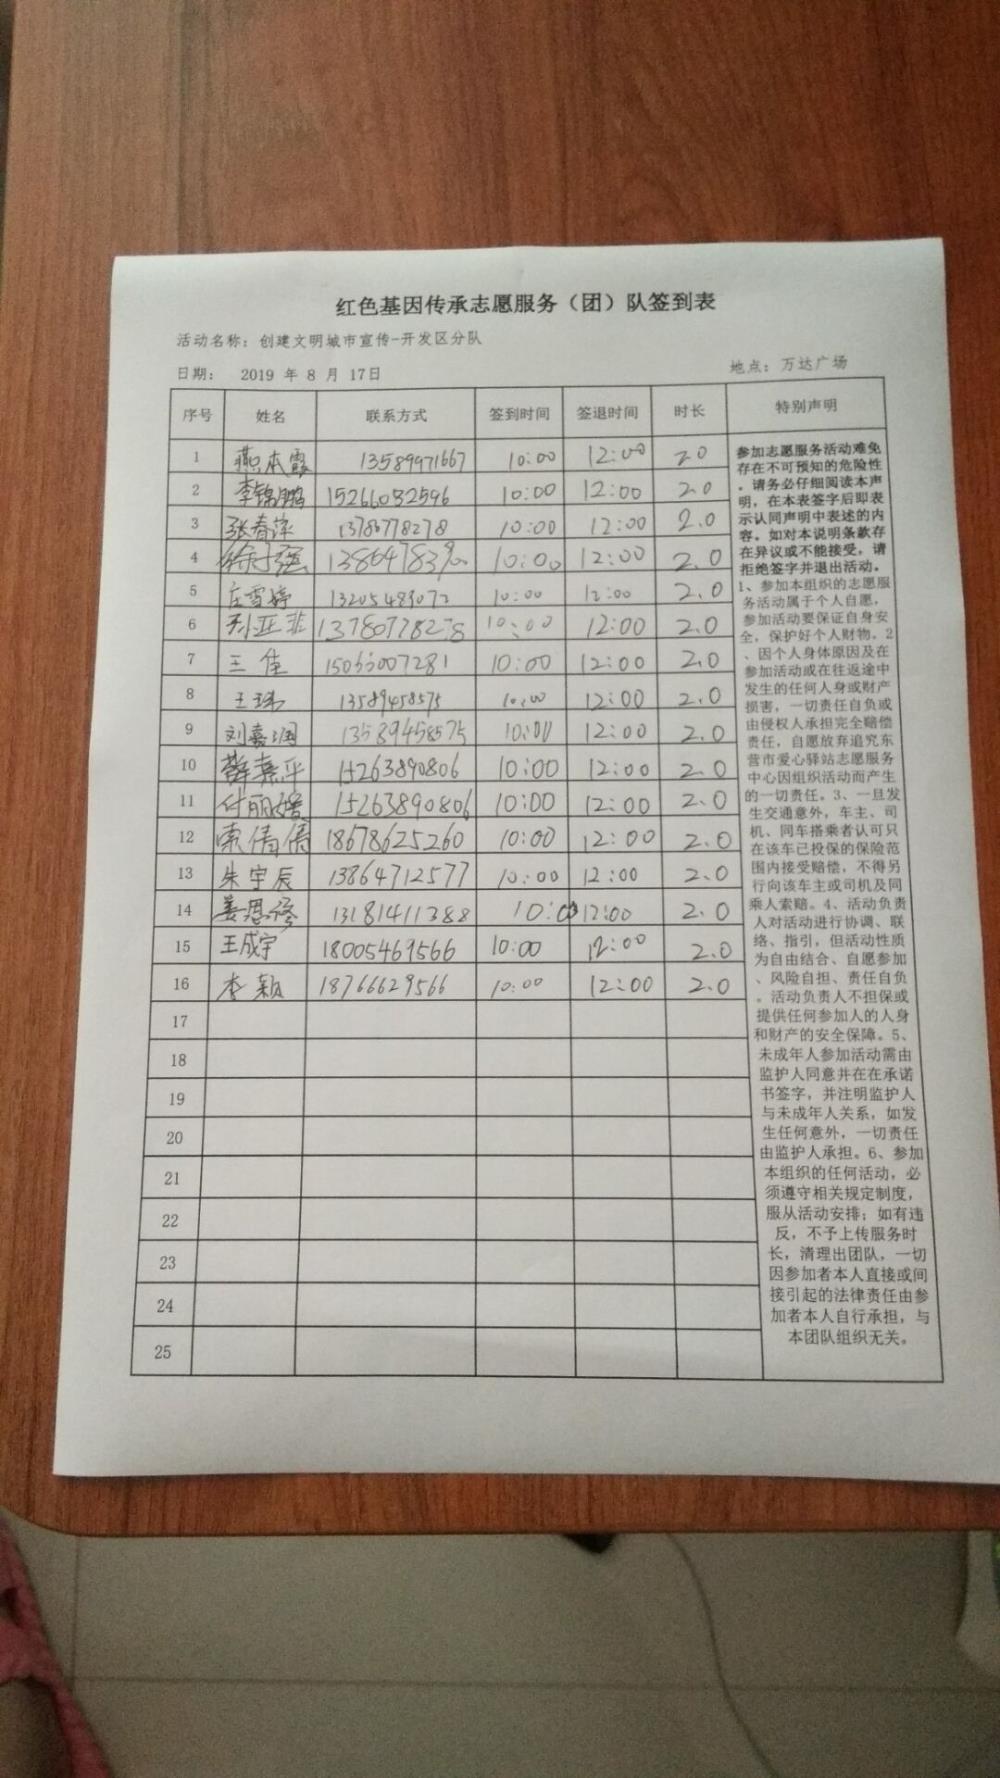 红色基因传承志愿服务（团）队签到表
活动名称：创建文明城市宣传-开发区分队
日期： 2019 年 8 月 17日
地点：万达广场
序号 姓名 联系方式 签到时间 签退时间 时长 特别声明
1 燕本霞 13589971667 10:00 12:00 2.0
2 李锦鹏 15266032596 10:00 12:00 2.0
3 张春萍 1378778278 10:00 12:00 2.0
4 徐子强 10:00 12:00 2.0
5 庄雪婷 13205483072 10:00 12:00 2.0
6 孙亚菲 13780778278 10:00 12:00 2.0
7 王佳 10:00 12:00 2.0
8 王瑞 13589458575 10:00 12:00 2.0
9 刘嘉润 13589458575 10:00 12:00 2.0
10 薛嘉平 15263890806 10:00 12:00 2.0
11 付丽媛 15263890806 10:00 12:00 2.0
12 索倩倩 18678625260 10:00 12:00 2.0
13 朱宇辰 13864712577 10:00 12:00 2.0
14 姜恩 13181411388 10:00 12:00 2.0
15 王成宇 18005469566 10:00 12:00 2.0
16 李颖 18766629566 10:00 12:00 2.0
17
18
19
20
21
22
23
24
25
参加志愿服务活动难免
存在不可预知的危险性
。请务必仔细阅读本声
明，在本表签字后即表
示认同声明中表述的内
容。如对本说明条款存
在异议或不能接受，请
拒绝签字并退出活动。
1、参加本组织的志愿服
务活动属于个人自愿，
参加活动要保证自身安
全，保护好个人财物。2
、因个人身体原因及在
参加活动或在往返途中
发生的任何人身或财产
损害，一切责任自负或
由侵权人承担完全赔偿
责任，自愿放弃追究东
营市爱心驿站志愿服务
中心因组织活动而产生
的一切责任。3、一旦发
生交通意外，车主、司
机、同车搭乘者认可只
在该车已投保的保险范
围内接受赔偿，不得另
行向该车主或司机及同
乘人索赔。4、活动负责
人对活动进行协调、联
络、指引，但活动性质
为自由结合、自愿参加
、风险自担、责任自负
。活动负责人不担保或
提供任何参加人的人身
和财产的安全保障。5、
未成年人参加活动需由
监护人同意并在在承诺
书签字，并注明监护人
与未成年人关系，如发
生任何意外，一切责任
由监护人承担。6、参加
本组织的任何活动，必
须遵守相关规定制度，
服从活动安排；如有违
反，不予上传服务时
长，清理出团队，一切
因参加者本人直接或间
接引起的法律责任由参
加者本人自行承担，与
本团队组织无关。